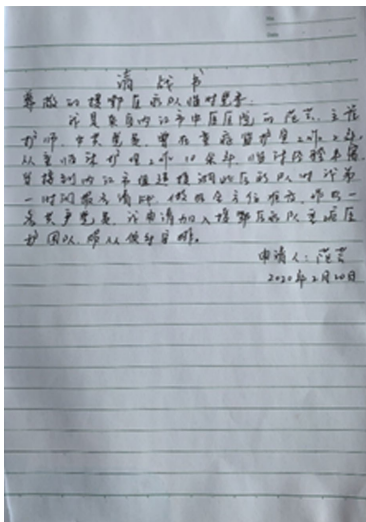 请战书
尊敬的援鄂医疗队临时党委:
我是来自内江市中医医院的范芸,主管
护师,中共党员,曾在重症监护室工作2年,
从事临床护理工作10余年,临床经验丰富,
当接到内江市组建援湖北医疗队时我第
一时间报名请战,做好全方位准备,作为一
名共产党员,我申请加入援鄂医疗队重症医
护团队,
申请人:范芸
2020年2月20日